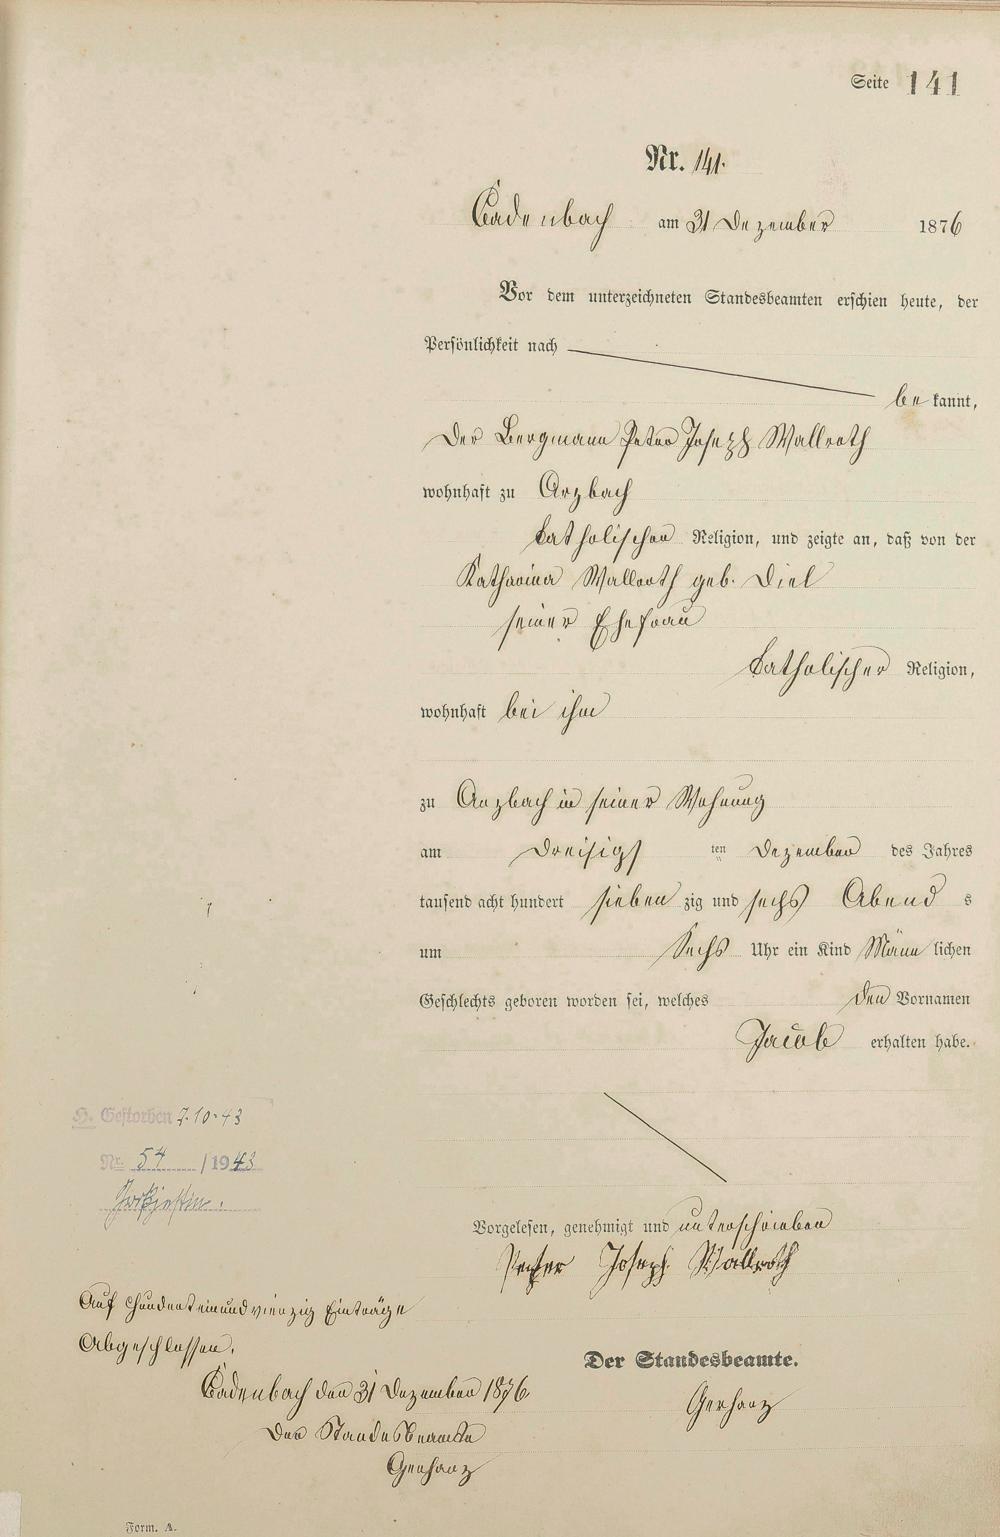 Seite 141
Nr. 141.
Cadenbach am 31 Dezember 1876
Vor dem unterzeichneten Standesbeamten erschien heute, der
Persönlichkeit nach
be kannt,
Der Bergmann Peter Joseph Wallroth
wohnhaft zu Arzbach
katholischer Religion, und zeigte an, daß von der
Katharina Wallroth geb. Diel
seiner Ehefrau
katholischer Religion,
wohnhaft bei ihm
zu Arzbach in seiner Wohnung
am Dreisigs ten Dezember des Jahres
tausend acht hundert sieben zig und sechs Abend s
um Sechs Uhr ein Kind Männ lichen
Geschlechts geboren worden sei, welches den Vornamen
Jacob erhalten habe.
H. Gestorben 7.10.43
Nr. 54 /1943
Vorgelesen, genehmigt und unterschrieben
Peter Joseph Wallroth
Auf Hunderteinundvierzig Einträge
Abgeschlossen.
Der Standesbeamte.
Cadenbach den 31 Dezember 1876
Gerharz
Der Standesbeamte
Gerharz
Form. A.